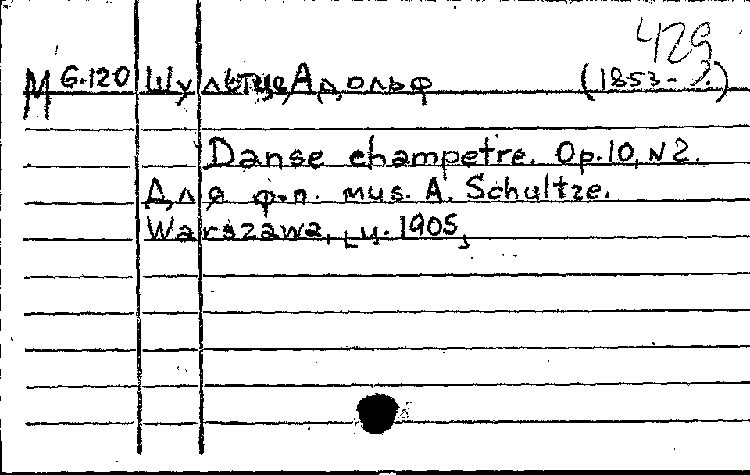 429
М G.120 Шультце, Адольф (1853-?)
Danse champetre. Op.10, N2.
Для ф.п. mus. A. Schultze.
Warszawa, [ц. 1905]